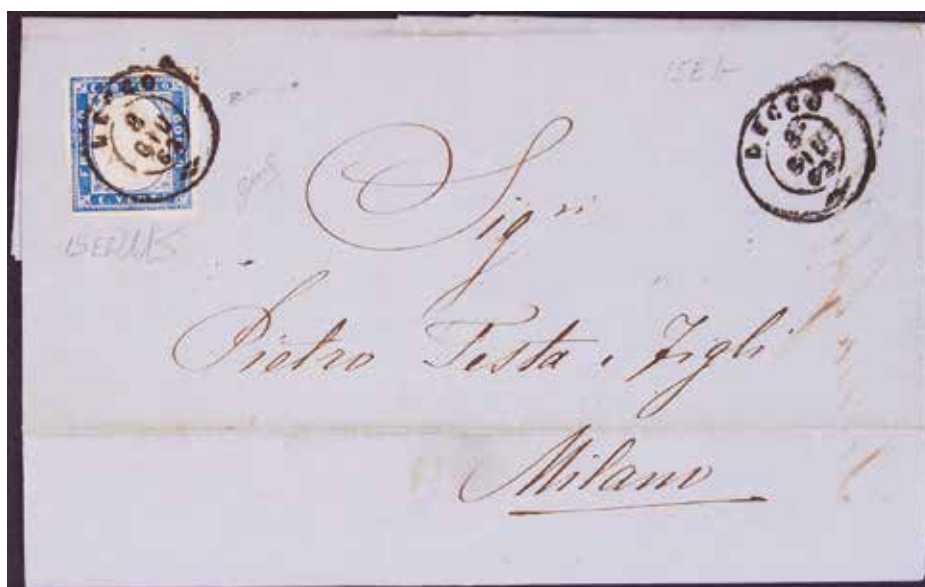 LECCO
8
GIU
62
LECCO
8
GIU
62
Sig.ri
Pietro Testa e Figli
Milano